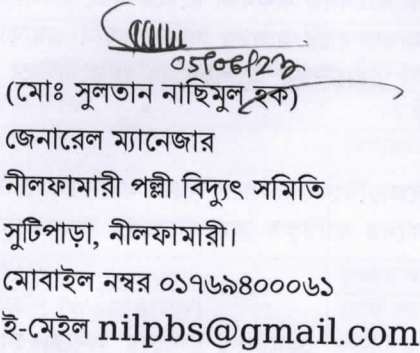 05/06/23
(মোঃ সুলতান নাছিমুল হক)
জেনারেল ম্যানেজার
নীলফামারী পল্লী বিদ্যুৎ সমিতি
সুটিপাড়া, নীলফামারী।
মোবাইল নম্বর ০১৭৬৯৪০০০৬১
ই-মেইল nilpbs@gmail.com